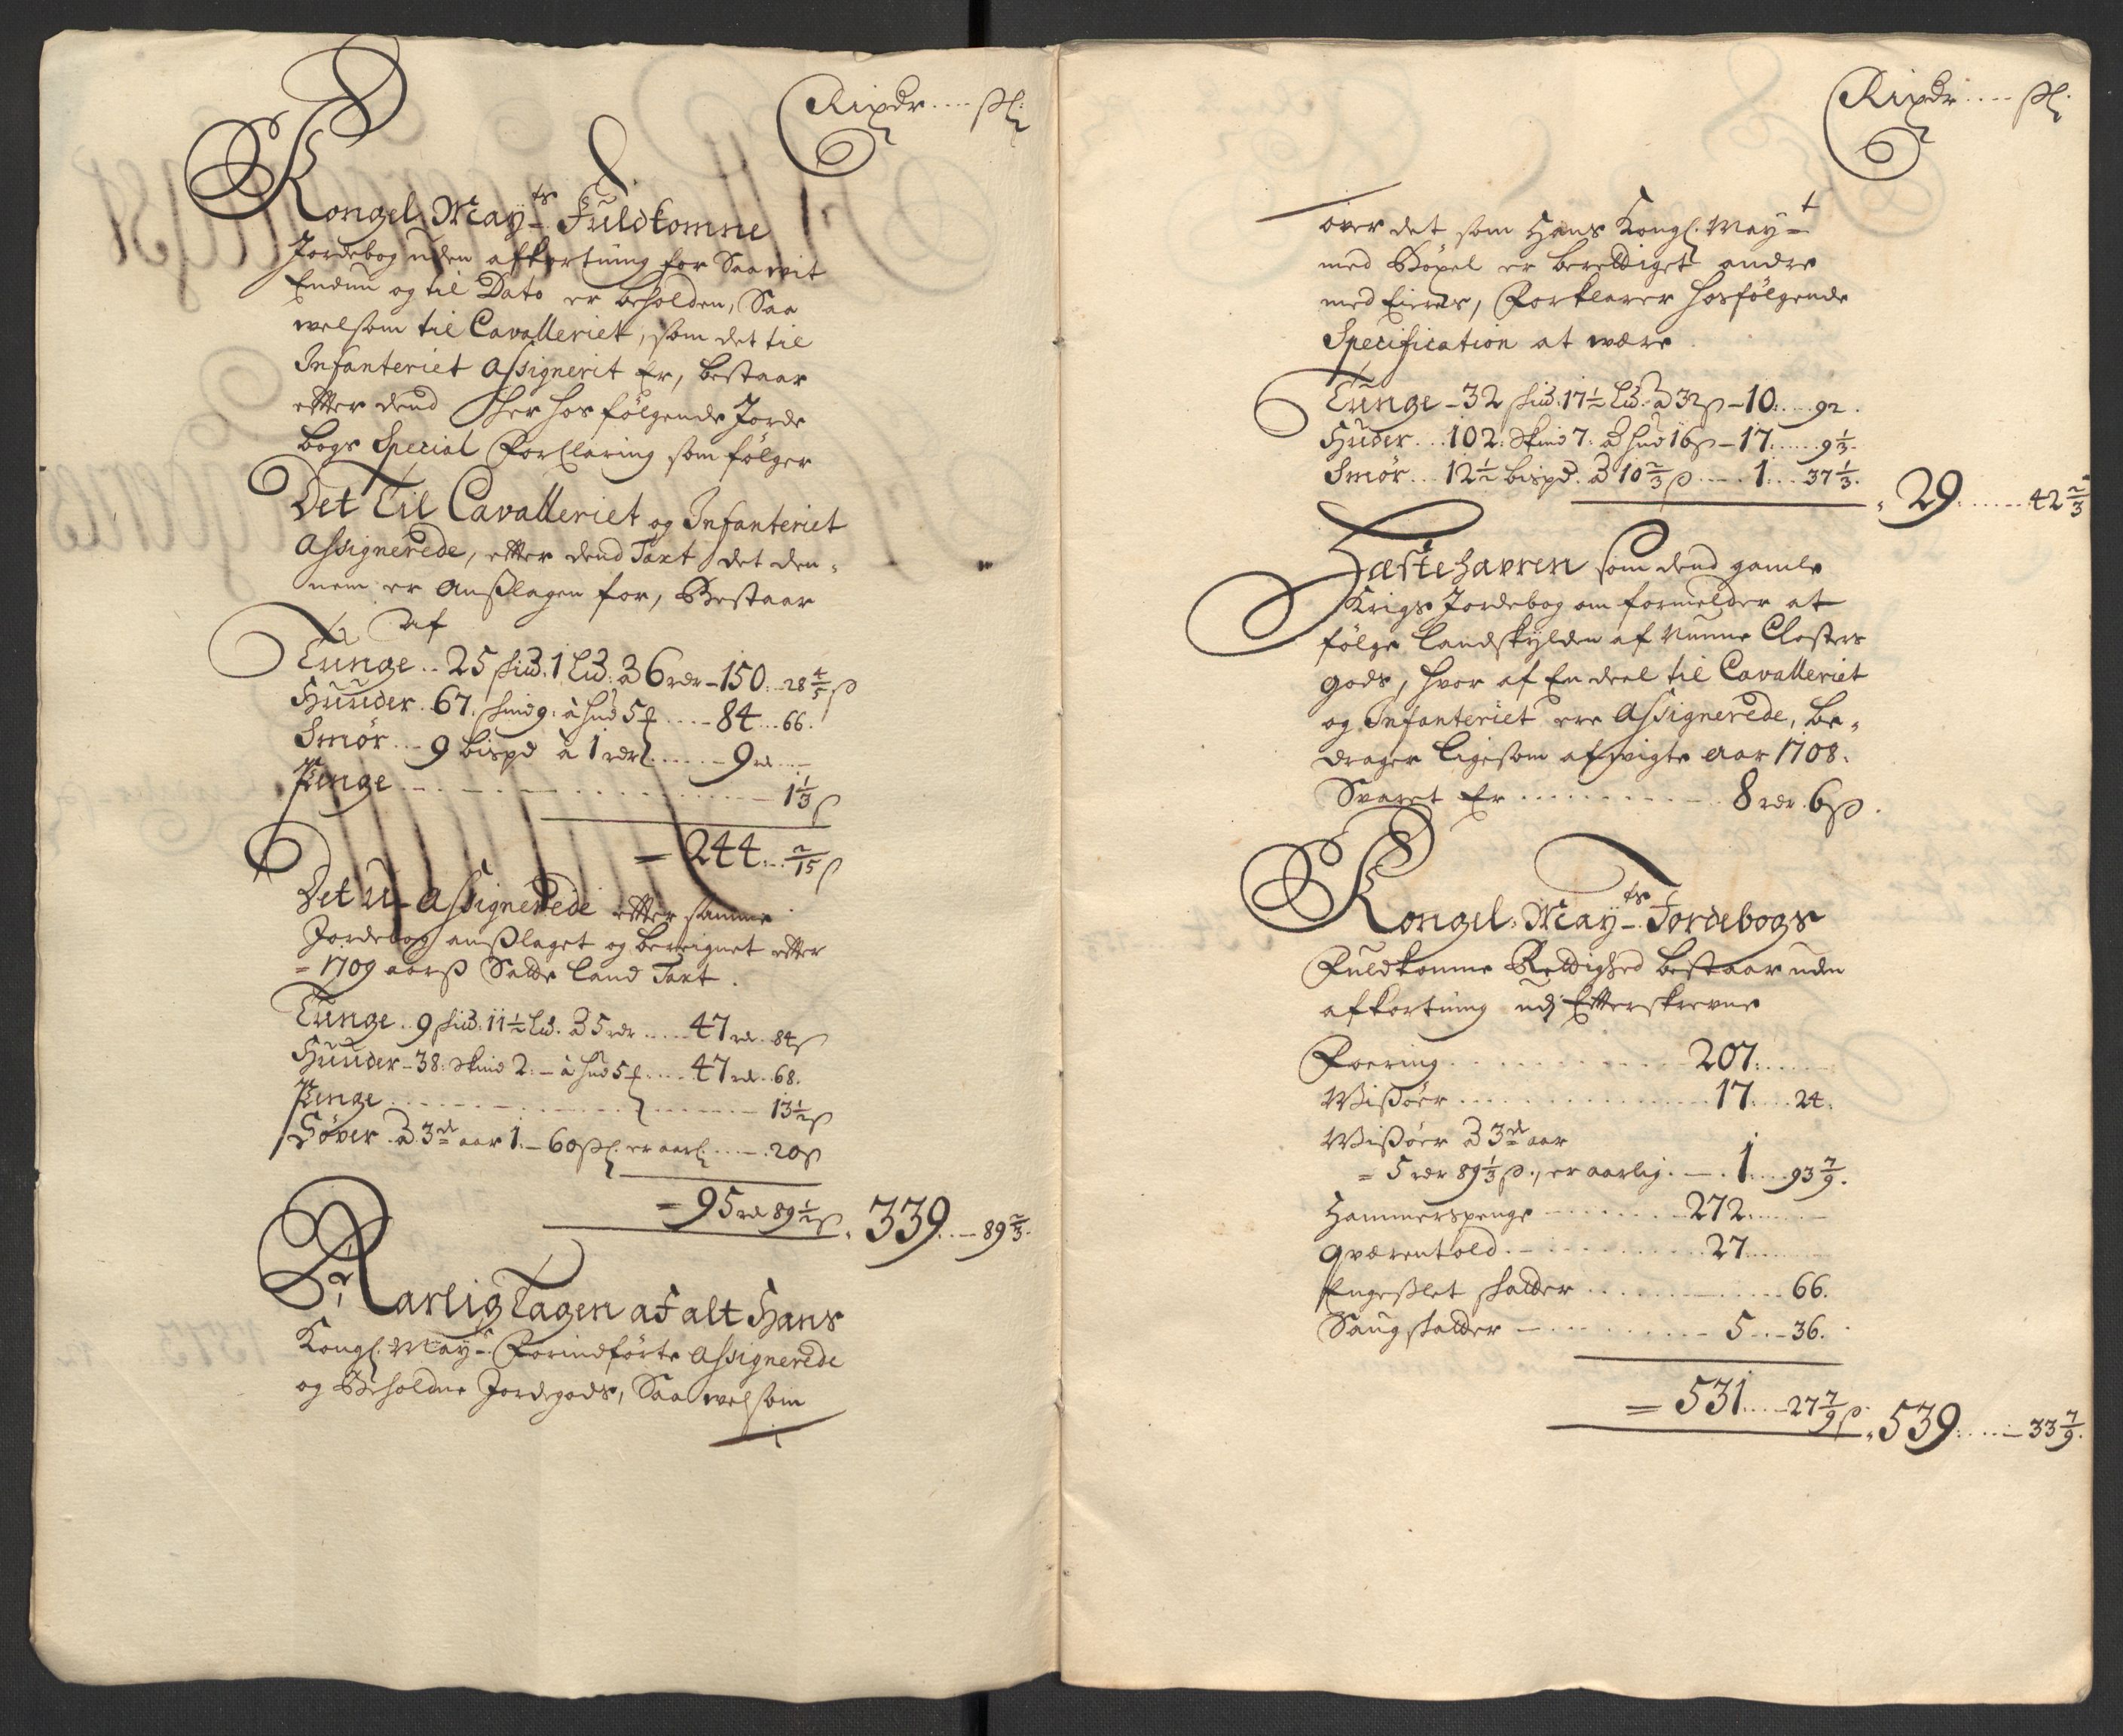 Rixdr .... ßl:
Kongel: Maÿts Fuldkomne
Jordebog uden afkortning for Saavit
Endnu og til Dato er beholden, Saa
velsom til Cavalleriet, som det til
Infanteriet Assignerit Er, bestaar
efter dend her hos følgende Jorde
bogs Special Forklaring som følger
Det Til Cavalleriet og Infanteriet
Assignerede, efter dend Taxt det den,
nem er Anßlagen for, Bestaar
Af
Tunge .. 25 skud: 1 Lid: à 6 rdr – 150: .. 28 4/5 ß
Huuder . 67. skind 9: à hud 5 ... – 84 ... 66.
Smør ... 9 bispd à 1 rdr ..... – 9 rd ....
Penge ............ 1 1/3 ß
= 244: .. 2/15 ß
Det U-Assignerede efter samme
Jordebog anßlaget og beregnet efter
= 1709 aarß Satte Land Taxt.
Tunge .. 9 skud: 11 1/2 Lid. à 5 rdr .... 47 rd. 84 ß
Huuder – 38: skind 2: – à hud 5 .... 47 rd. 68.
Penge ............ 13 1/2 ß
Söver à 3de aar 1. – 60 ßl: er aarl: .... 20 ß
= 95 rd 89 1/2 ß . 339 ... – 89 2/3.
Aarlig Tagen af alt Hans
Kongl: Maÿts Forindførte Assignerede
og Beholdne Jordegods, Saavelsom
Rixdr .... ßl:
over det som Hans Kongl: Maÿt
med Böxel er berettiget andre
med Eiere, Forklarer hosfølgende
Specification at være
Tunge – 32 skud: 17 1/2 Lid: à 32 ß – 10: .... 92.
Huder ... 102: Skind 7: à hud 16 ß – 17 ..... 9 1/3.
Smör ... 12 1/2 bispd. à 10 2/3 ß .... 1: ... 37 1/3.
. 29: ..... 42 2/3
Hæstehavren som dend gamle
Krigs Jordebog om formelder at
følge Landskylden af Nunne Closters
gods, hvor af En deel til Cavalleriet
og Infanteriet ere Assignerede, be,
drager ligesom afvigte Aar 1708.
Svaret Er .......... 8 rdr. 6 ß.
Kongel: Maÿts Jordebogs
Fuldkomne Rettighed bestaar uden
afkortning udj Efterskrevne
Foering ........... 207: .....
Wißöer ............ 17 .... 24.
Wißöer à 3de aar
= 5 rdr 89 1/3 ß., er aarlig. –. 1: ... 93 7/9.
Hammerspenge ....... 272 .....
Qværentold ........... 27 ......
Engeßlet skatter ........... 66.
Saugskatter – ......... 5 ... – 36.
= 531 ... – 27 7/9 ß . 539: .... – 33 7/9.